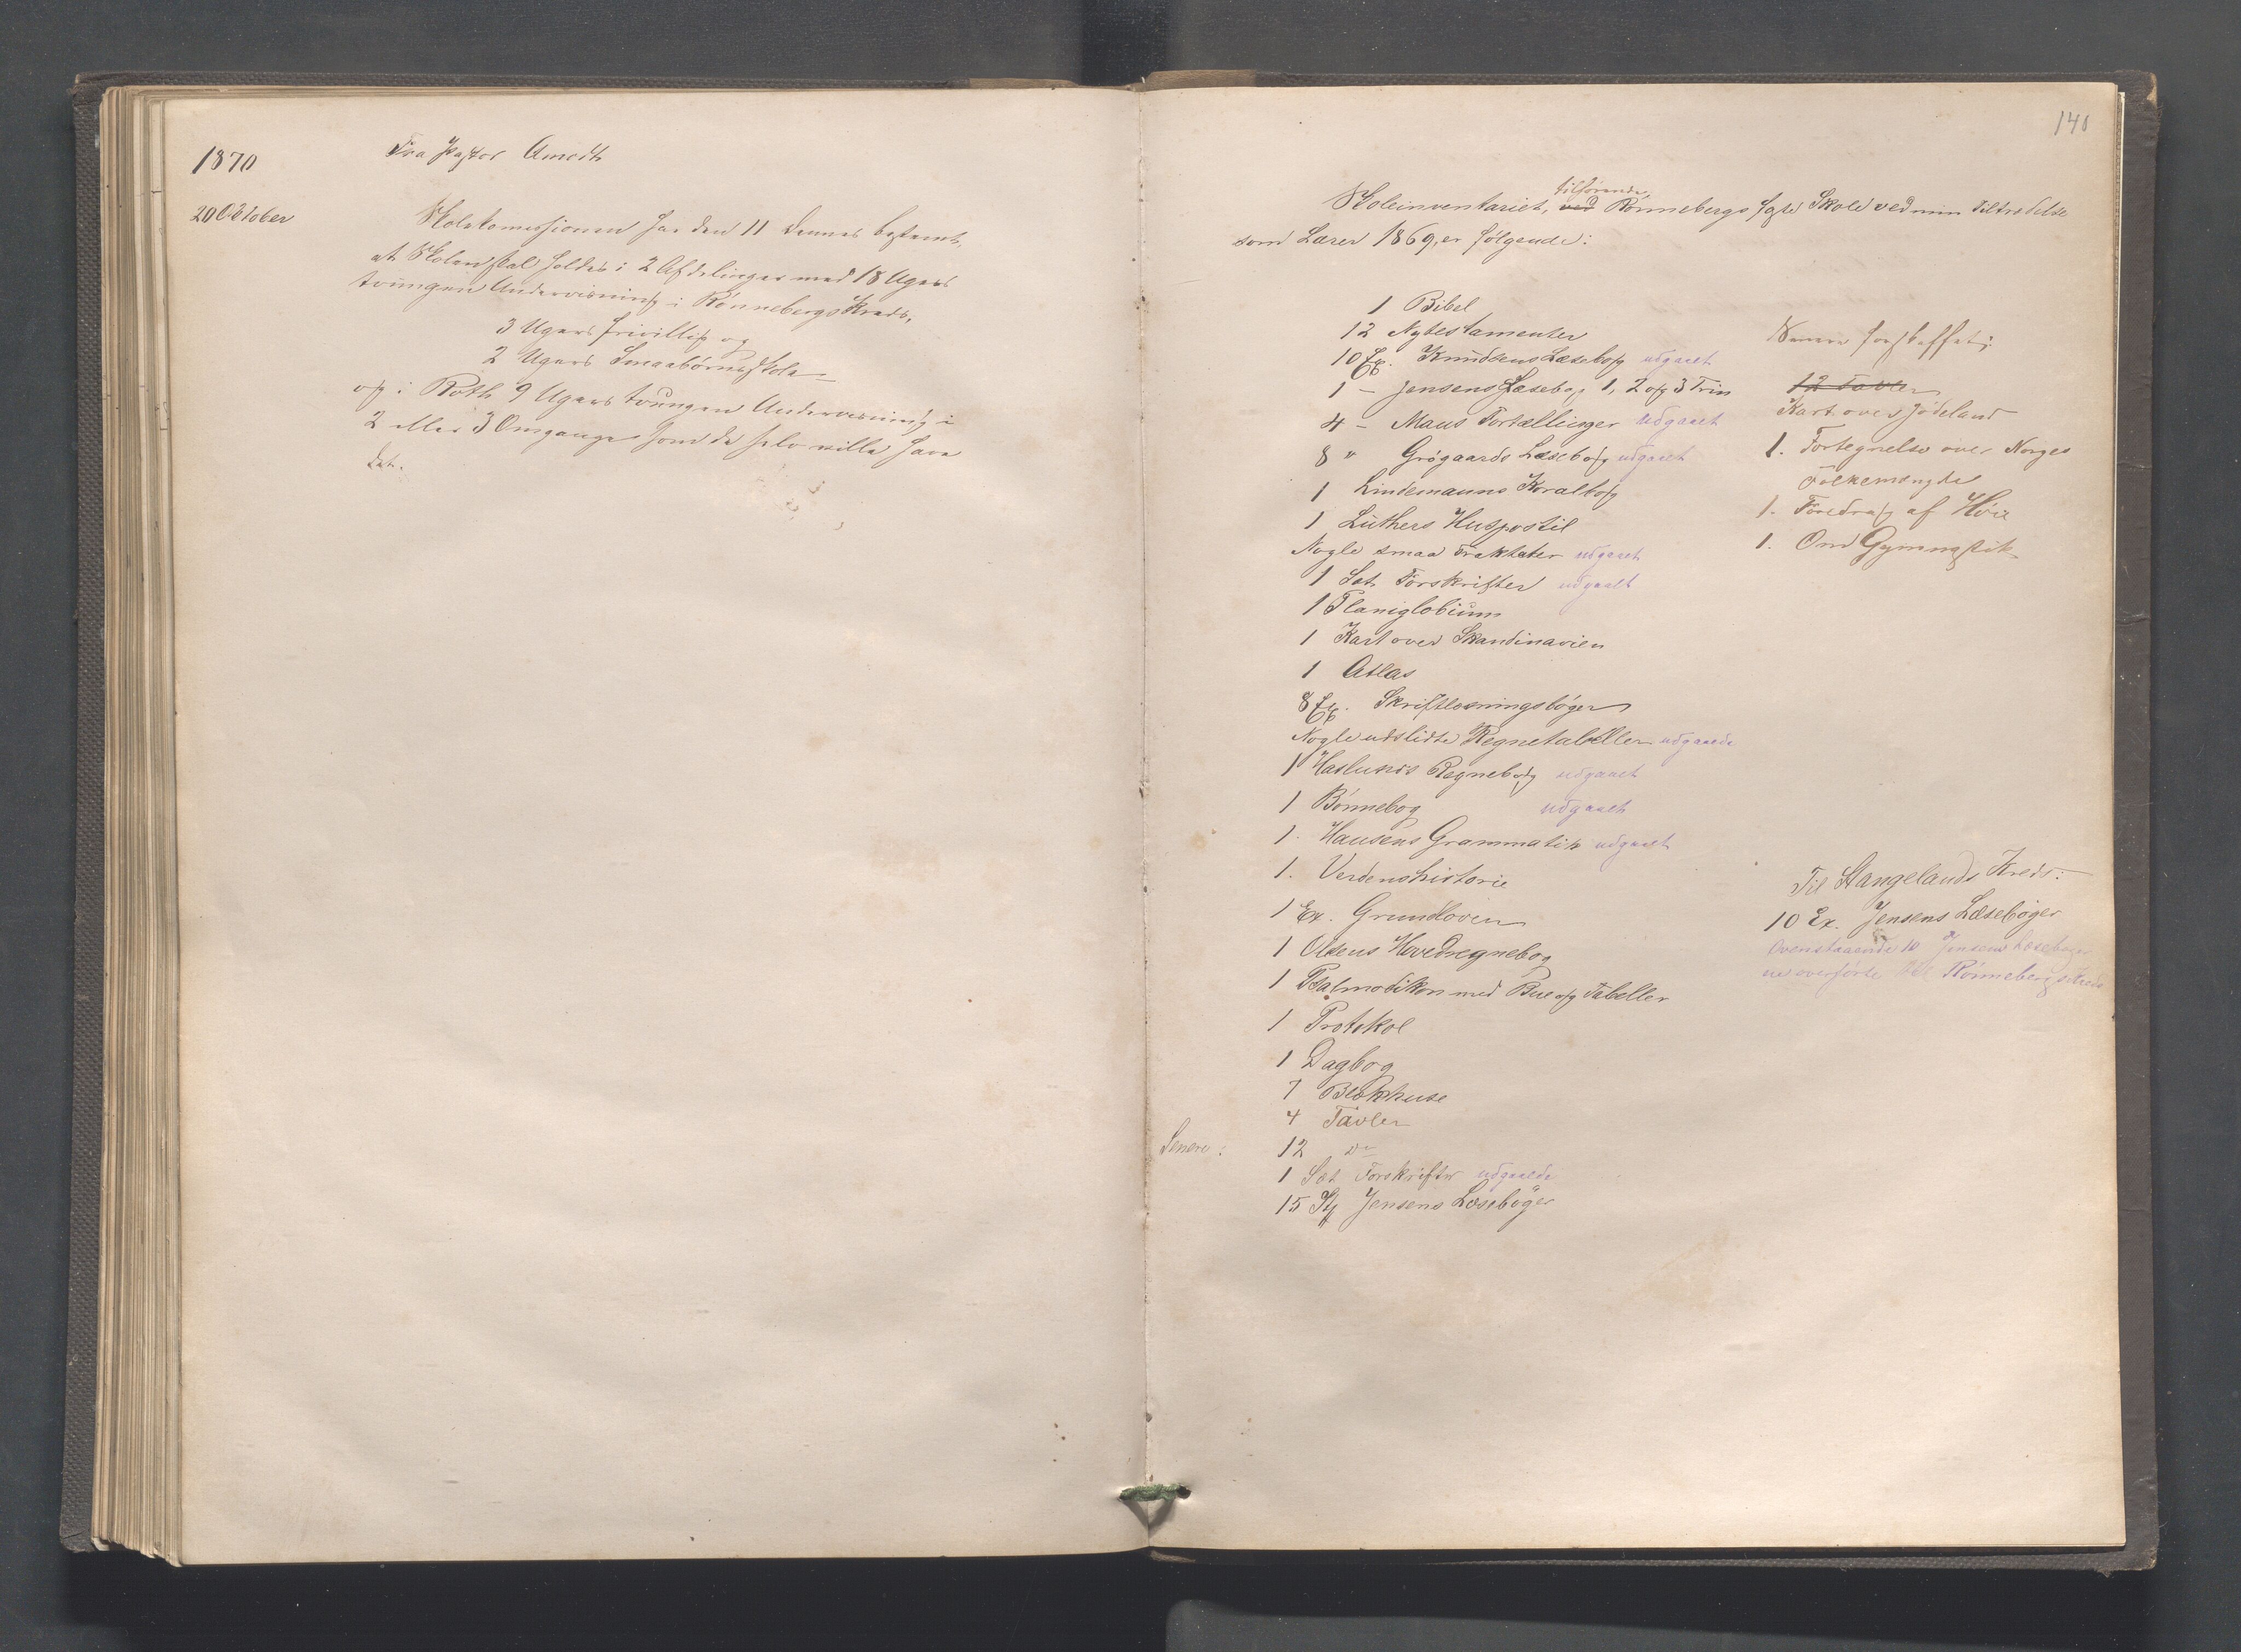 1870
Fra Pastor
20 October
Skolekomissionen har den 11 dennes bestemt,
at Skolen skal holdes i 2 Afdelinger med 18 Ugers
tvungen Undervisning i Rønnebergs Kreds,
3 Ugers frivillig og
2 Ugers Smaabørnsskole
og i Røth 9 Ugers tvungen Undervisning i
2 eller 3 Omgange som de selv ville have
det.
140
Skoleinventariet, tilhørende ved Rønnebergs faste Skole ved min Tiltrædelse
som Lærer 1869, er følgende:
1 Bibel
12 Nytestamenter
10 Ex. Knudsens Læsebog udgaaet
1 – Jensens Læsebog 1, 2 og 3 Trin
4 – Maus Fortællinger udgaaet
8 " Grøgaards Læsebog udgaaet
1 Lindemanns Koralbog
1 Luthers Huspostil
Nogle smaa Traktater udgaaet
1 Sæt Forskrifter udgaaet
1 Planiglobium
1 Kart over Skandinavien
1 Atlas
8 Ex. Skriftlæsningsbøger
Nogle udslidte Regnetabeller udgaaede
1 Haslunds Regnebog udgaaet
1 Bønnebog udgaaet
1. Hansens Grammatik udgaaet
1. Verdenshistorie
1 Ex. Grundloven
1 Olsens Hovedregnebog
1 Psalmodikon med Bue og Tabeller
1 Protokol
1 Dagbog
7 Blækhuse
4 Tavler
Senere: 12 do
1 Sæt Forskrifter udgaaede
15 St Jensens Læsebøger
Senere forskaffet:
12 Tavler
Kart over Jødeland
1. Fortegnelse over Norges
Folkemængde
1. Foredrag af Høie
1. Om Gymnastik
Til Stangelands Kreds:
10 Ex. Jensens Læsebøger
Ovenstaaende 10 Jensens Læsebøger
er overførte til Rønnebergs Kreds